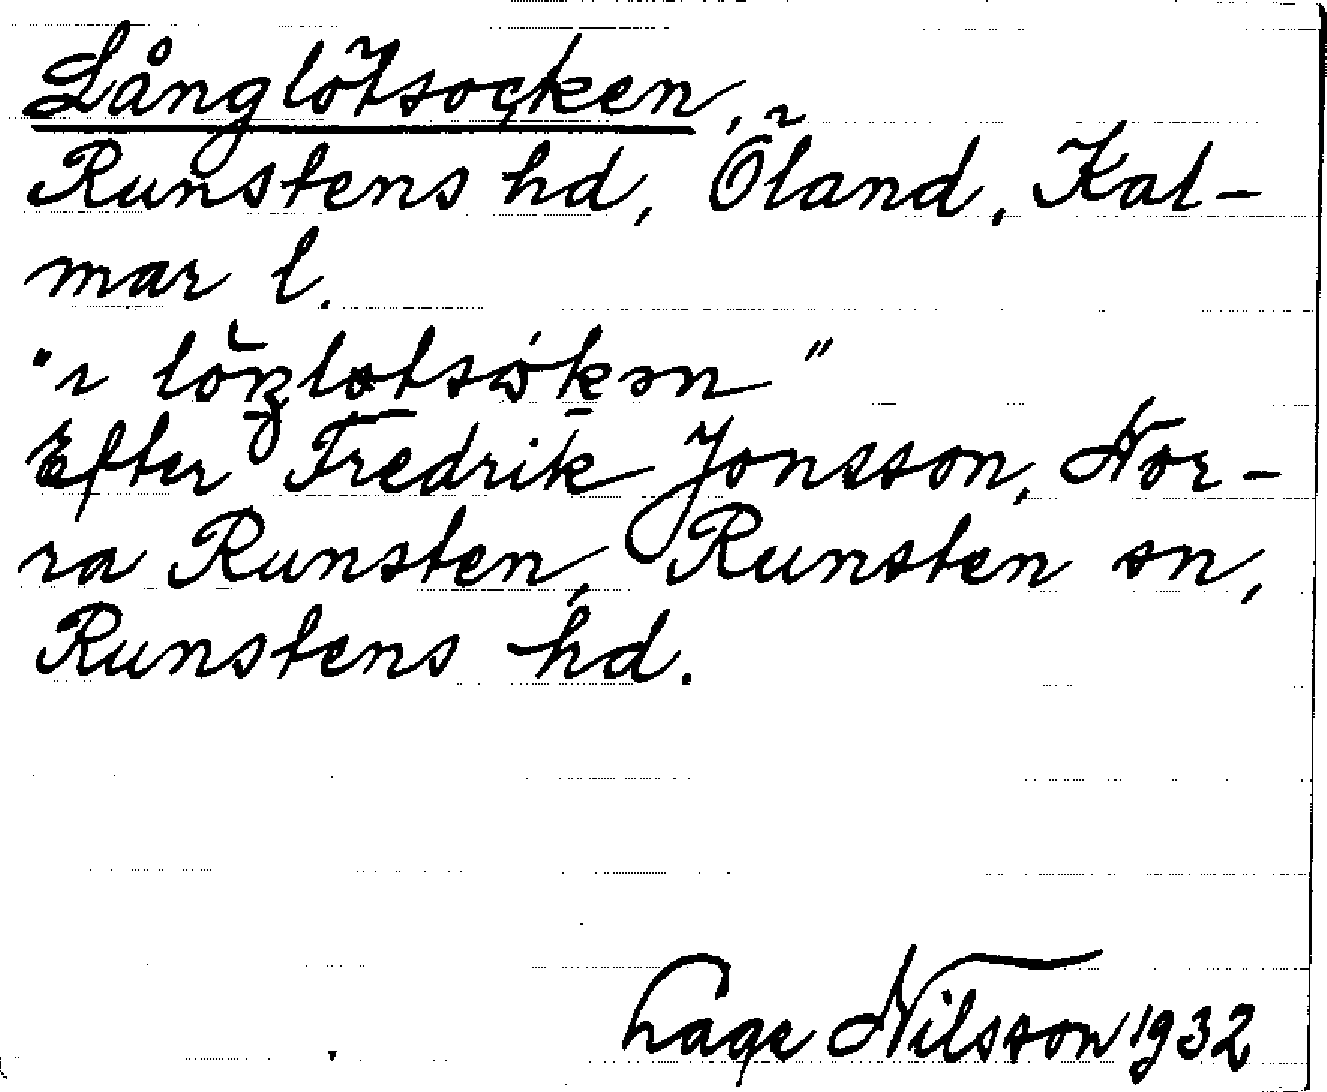 Långlötsocken,
Runstens hd, Öland, Kal-
mar l.
Efter Fredrik Jonsson, Nor-
ra Runsten, Runsten sn,
Runstens hd.
Lage Nilsson 1932